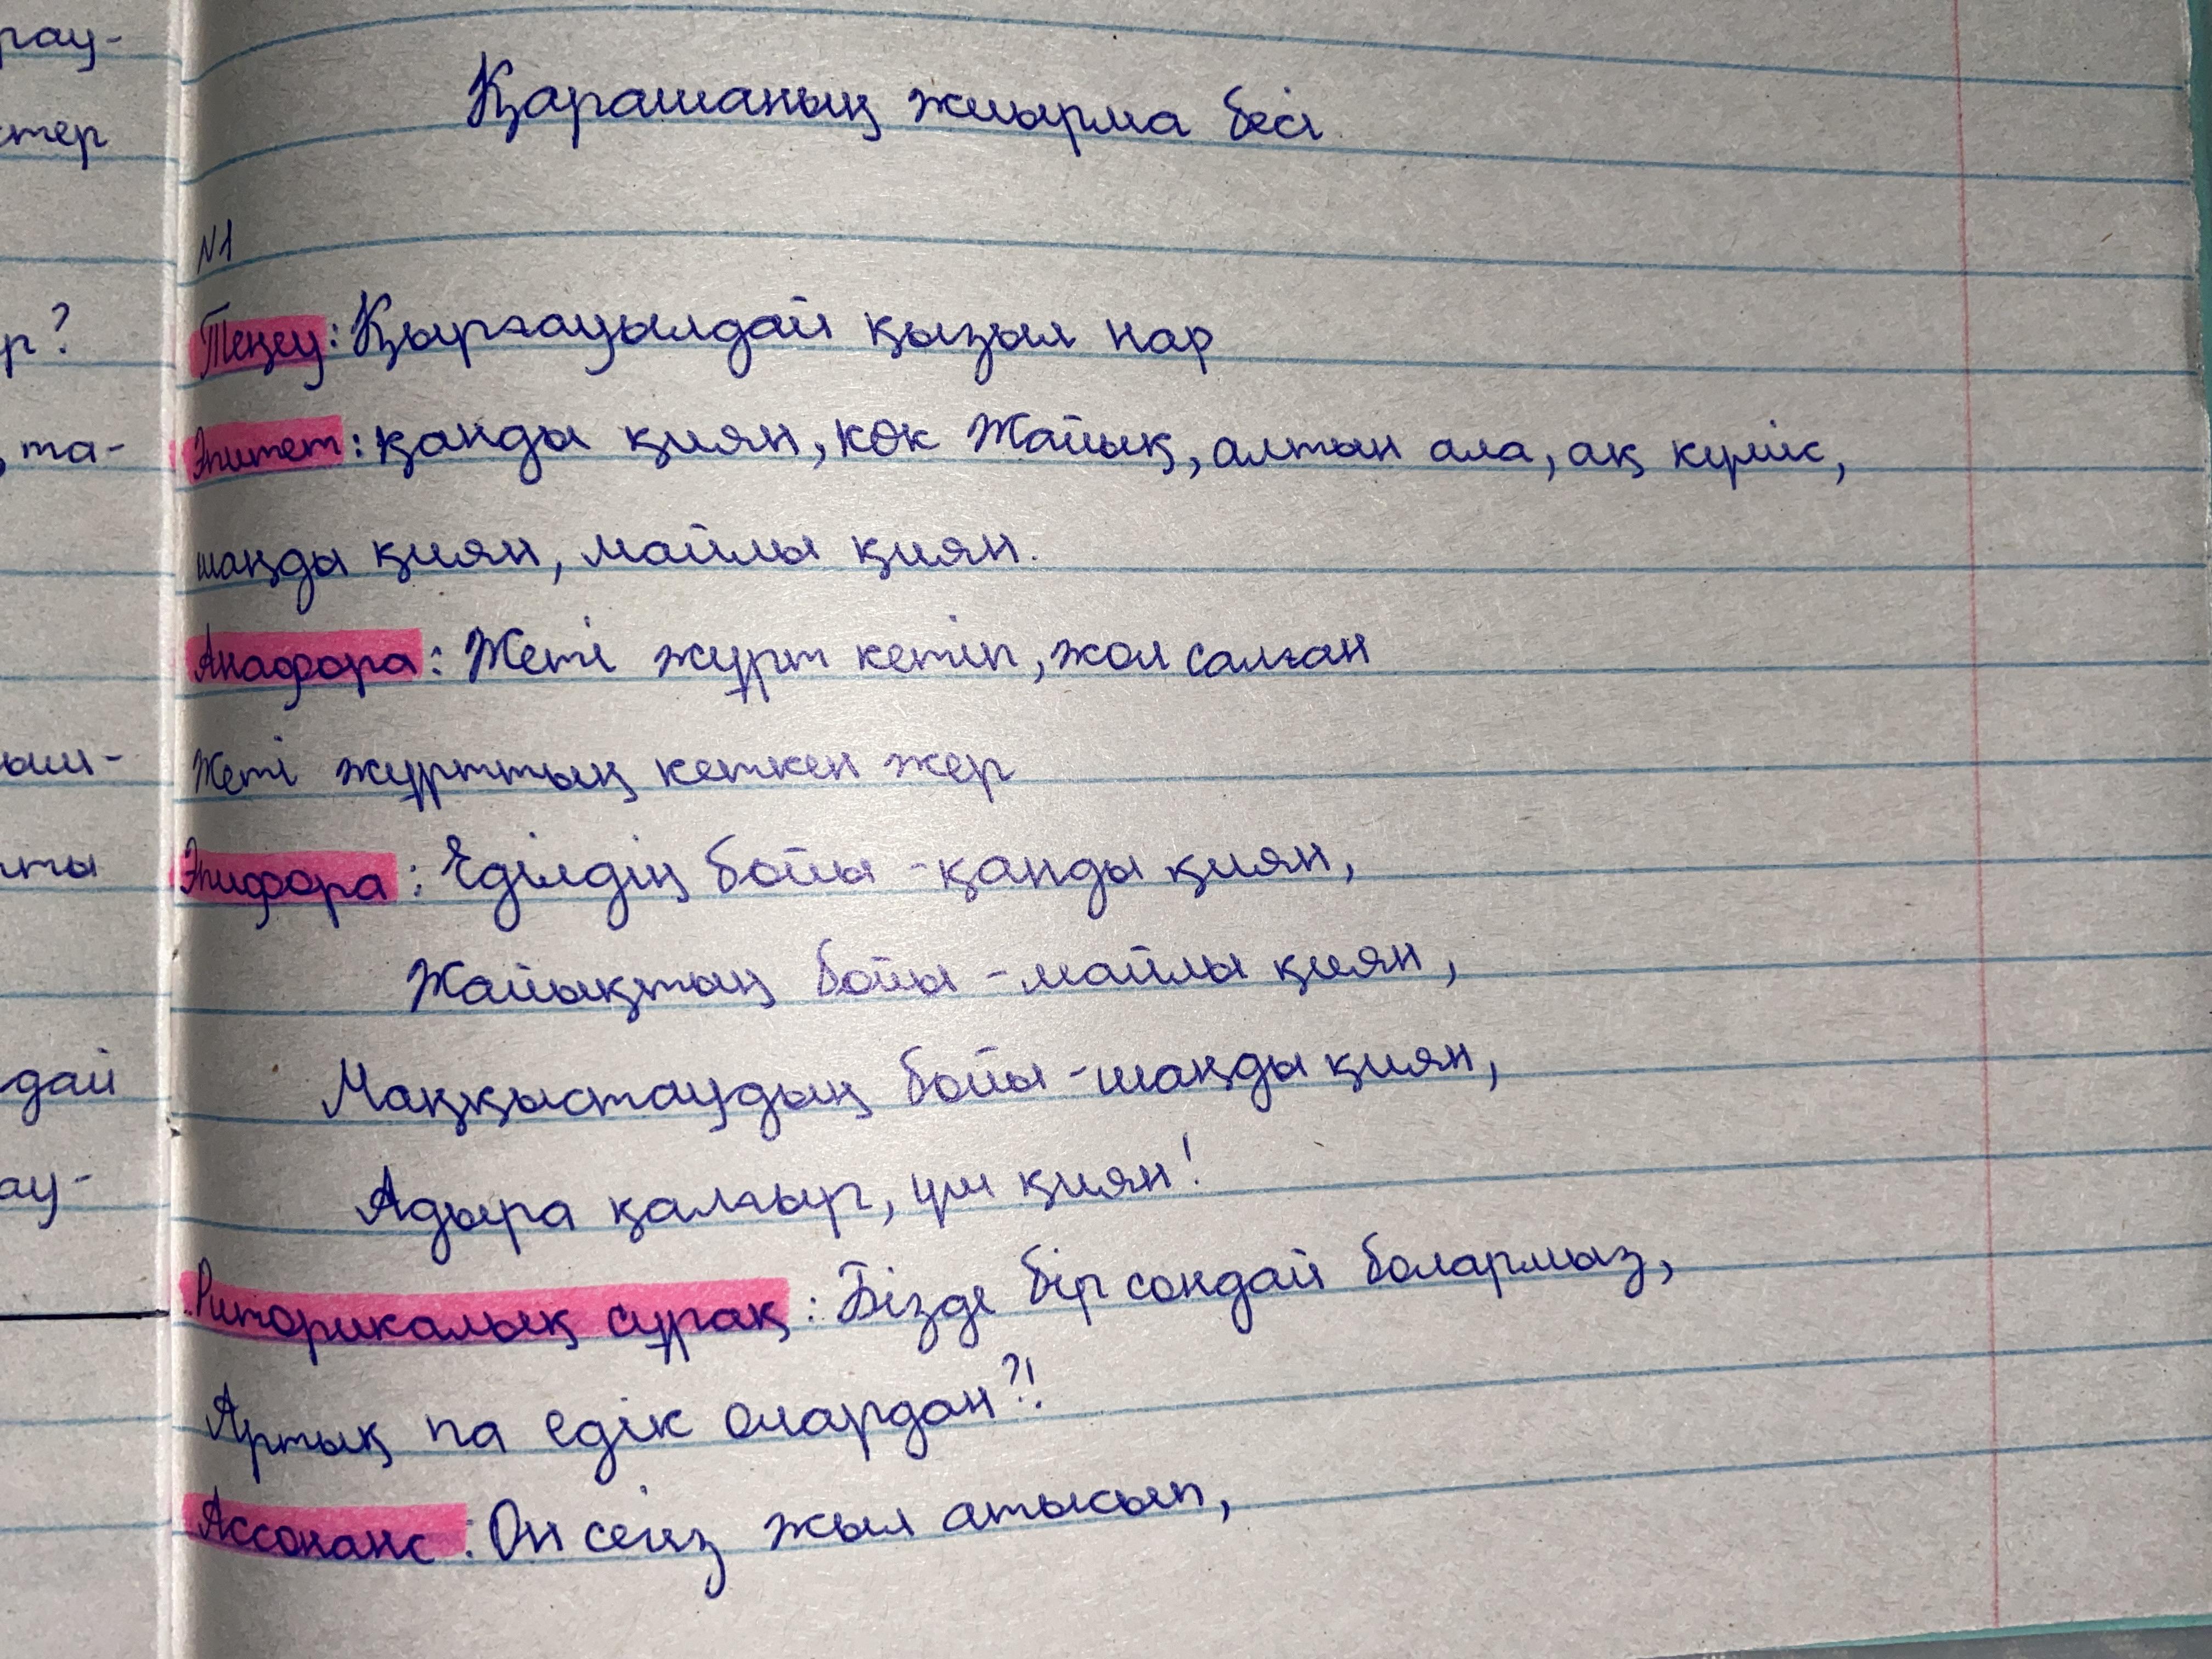 рау-
стер
р?
, та-
ыш-
рты
дай
ау-
Қарашаның жиырма бесі
N1
Теңеу: Қырғауылдай қызыл нар
Эпитет: қанды қиян, көк Жайық, алтын ала, ақ күміс,
шаңды қиян, майлы қиян.
Анафора: Жеті жұрт кетіп, жол салған
Жеті жұрттың кеткен жер
Эпифора: Еділдің бойы - қанды қиян,
Жайықтың бойы - майлы қиян,
Маңқыстаудың бойы - шаңды қиян,
Адыра қалғыр, үш қиян!
Риторикалық сұрақ: Бізде бір сондай болармыз,
Артық па едік олардан?!
Ассонанс: Он сегіз жыл атысып,